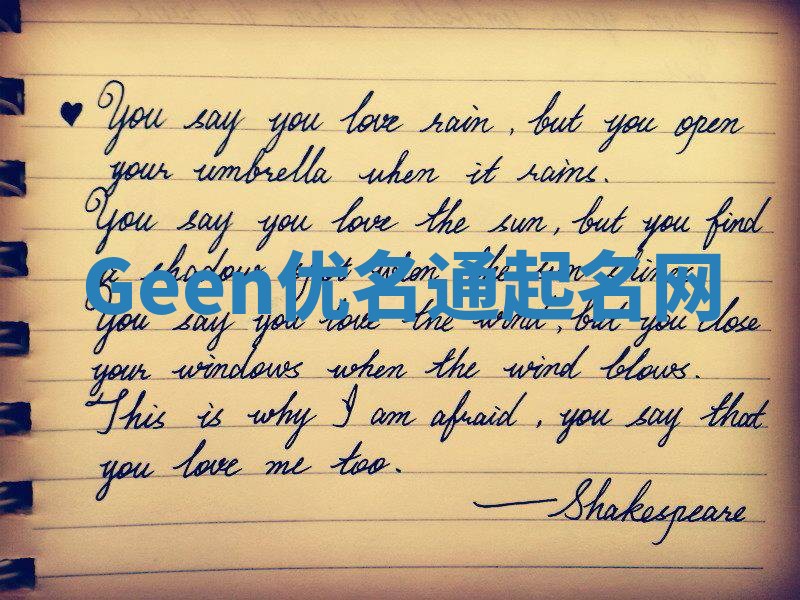 ♥ You say you love rain, but you open
your umbrella when it rains.
You say you love the sun, but you find
a shadow spot when the sun shines.
Geen优名通起名网
You say you love the wind, but you close
your windows when the wind blows.
This is why I am afraid, you say that
you love me too.
—Shakespeare